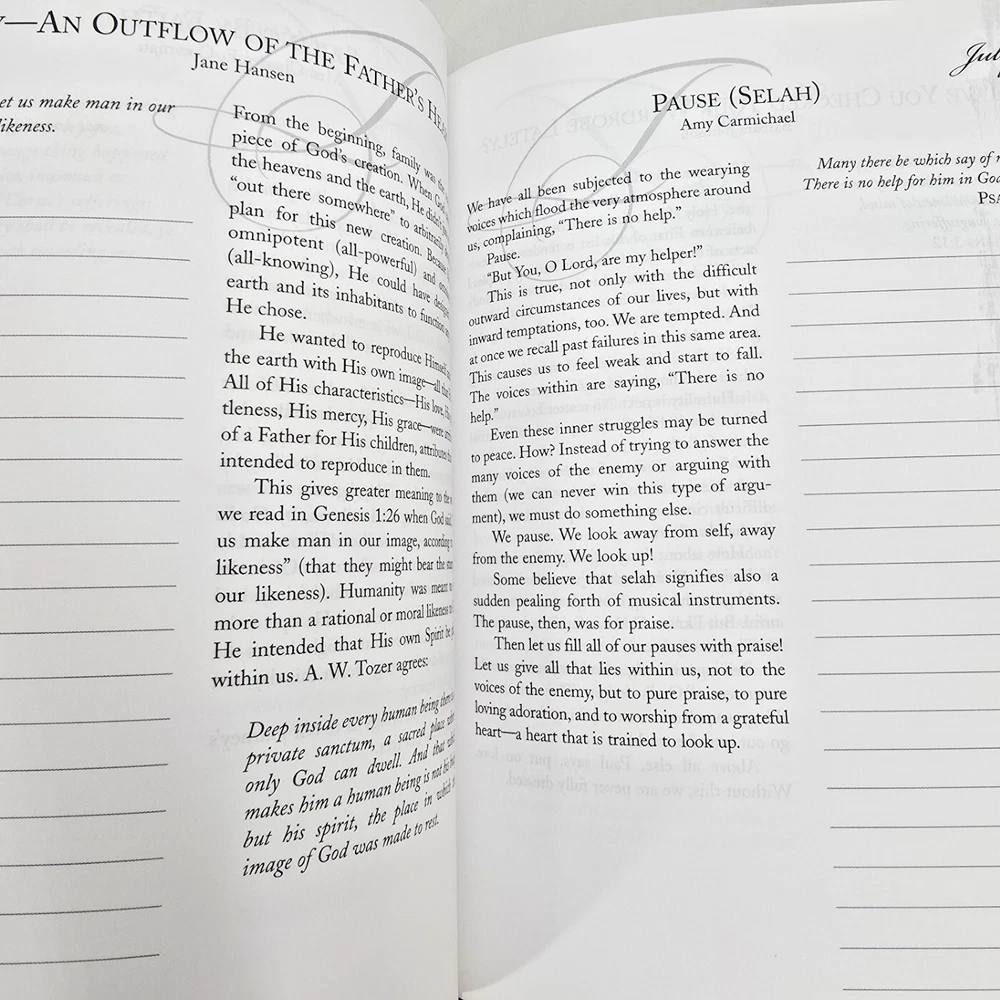 —AN OUTFLOW OF THE FATHER'S
Jane Hansen
let us make man in our
likeness.
From the beginning, family was the
piece of God's creation. When God
the heavens and the earth, He didn't
"out there somewhere" to arbitrarily
plan for this new creation. Because
omnipotent (all-powerful) and
(all-knowing), He could have
earth and its inhabitants to function
He chose.
He wanted to reproduce Himself
the earth with His own image—all
All of His characteristics—His love,
tleness, His mercy, His grace—were
of a Father for His children, attributes
intended to reproduce in them.
This gives greater meaning to the
we read in Genesis 1:26 when God said
us make man in our image, according
likeness" (that they might bear the
our likeness). Humanity was meant
more than a rational or moral likeness
He intended that His own Spirit be
within us. A. W. Tozer agrees:
Deep inside every human being there
private sanctum, a sacred place
only God can dwell. And that
makes him a human being is not his
but his spirit, the place in which
image of God was made to rest.
PAUSE (SELAH)
Amy Carmichael
We have all been subjected to the wearying
voices which flood the very atmosphere around
us, complaining, "There is no help."
Pause.
"But You, O Lord, are my helper!"
This is true, not only with the difficult
outward circumstances of our lives, but with
inward temptations, too. We are tempted. And
at once we recall past failures in this same area.
This causes us to feel weak and start to fall.
The voices within are saying, "There is no
help."
Even these inner struggles may be turned
to peace. How? Instead of trying to answer the
many voices of the enemy or arguing with
them (we can never win this type of argu-
ment), we must do something else.
We pause. We look away from self, away
from the enemy. We look up!
Some believe that selah signifies also a
sudden pealing forth of musical instruments.
The pause, then, was for praise.
Then let us fill all of our pauses with praise!
Let us give all that lies within us, not to the
voices of the enemy, but to pure praise, to pure
loving adoration, and to worship from a grateful
heart—a heart that is trained to look up.
Many there be which say of
There is no help for him in God